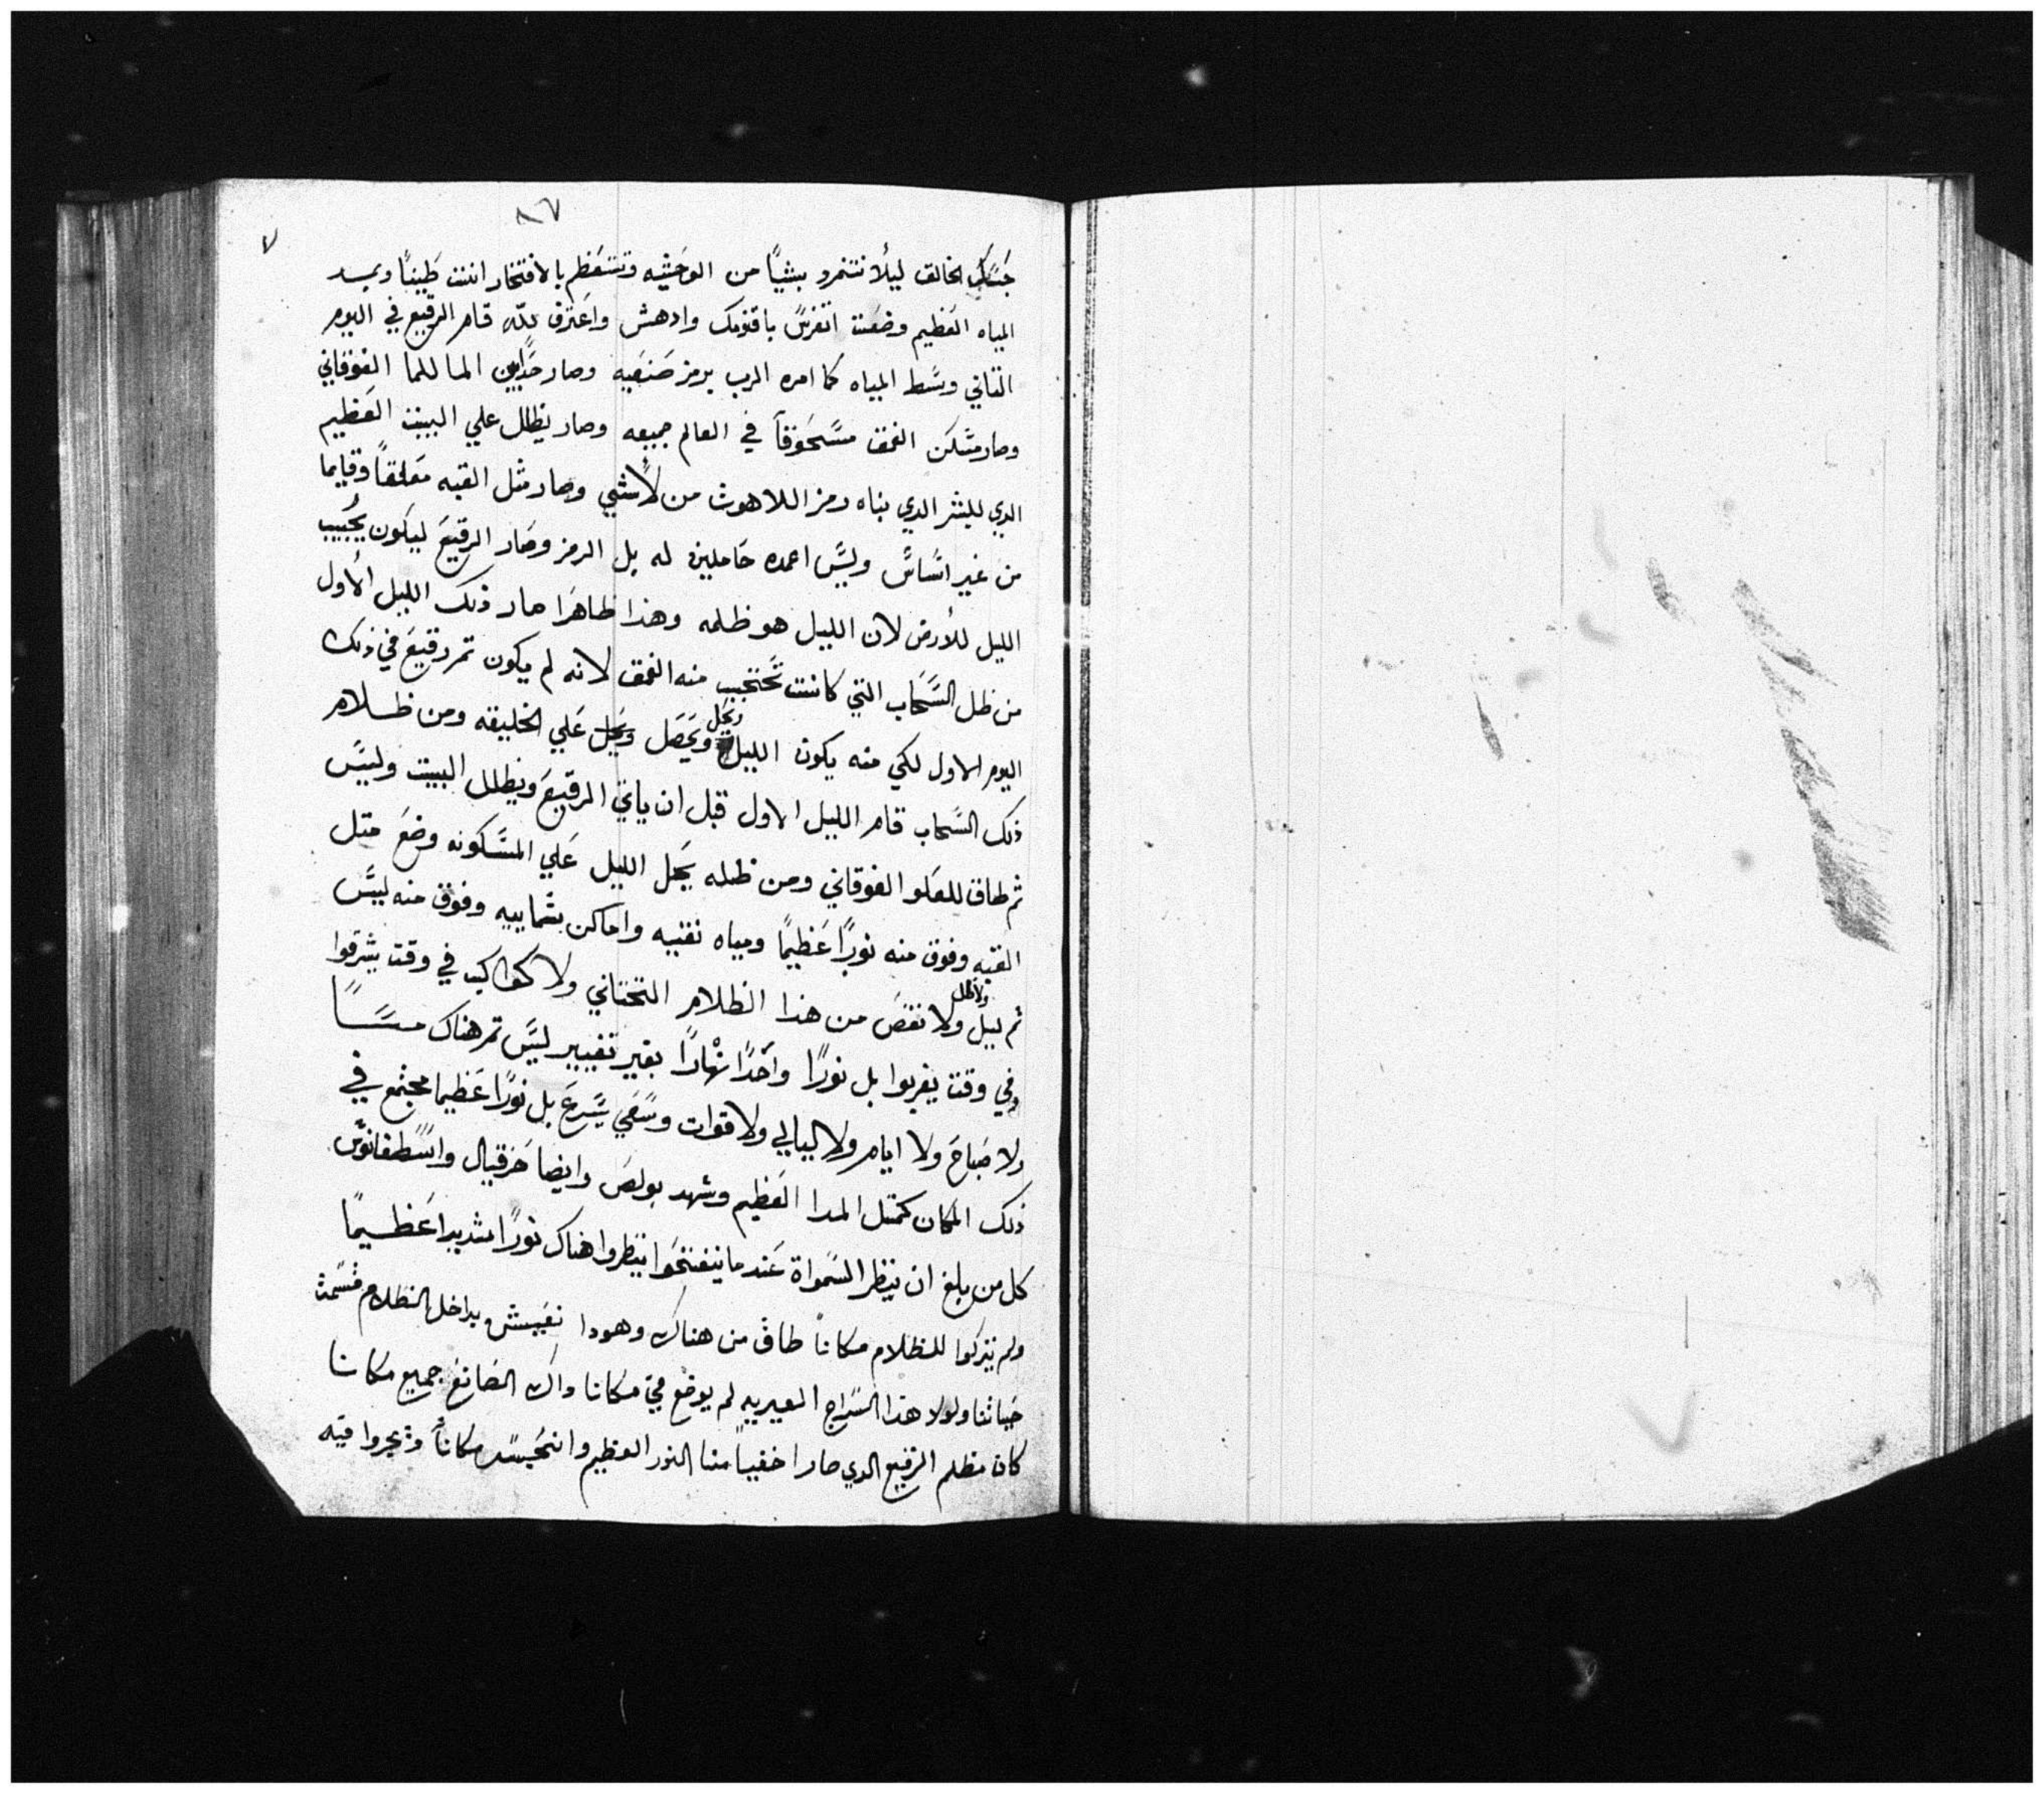 ٨٧
٧
جنسك الخالق ليلا تتمرد بشيًا من الوحشيه وتتعظم بالافتخار انت طينًا وبيد
المياه العظيم وضعت اتفرس باقنومك وادهش واعترف لله قام الرقيع في اليوم
التاني وسط المياه كما امره الرب برمز صنعيه وصار حدًا بين الما للما الفوقاني
وصار مسكن الغمق مسحوقًا في العالم جميعه وصار يظلل علي البيت العظيم
الدي للبشر الدي بناه رمز اللاهوت من لا شي وصار مثل القبه معلقًا وقايما
من غير اساس وليس اعمده حاملين له بل الرمز وصار الرقيع ليكون يجيب
الليل للأرض لان الليل هو ظلمه وهذا ظاهرا صار ذلك الليل الأول
من ظل السحاب التي كانت تحتجب منه الغمق لانه لم يكون تم رقيع في ذلك
اليوم الاول لكي منه يكون الليل ويحل ويحصل علي الخليقه ومن ظلام
ذلك السحاب قام الليل الاول قبل ان ياتي الرقيع ويظلل البيت وليس
ثم طاق للعلو الفوقاني ومن ظله يحل الليل علي المسكونه وضع متل
القبه وفوق منه نورًا عظيمًا ومياه نقيه واماكن بسماييه وفوق منه ليس
تم ليل ولا ظل ولا نقص من هذا الظلام التحتاني ولا كواكب في وقت يشرقوا
وفي وقت يغربوا بل نورًا واحدًا نهارًا بغير تغيير ليس تم هناك مسًا
ولا صباح ولا ايام ولا ليالي ولا قوات وسعي يسرع بل نورًا عظيما مجتمع في
ذلك المكان كمتل المدا العظيم وشهد بولص وايضا حزقيال واسطفانوس
كل من بلغ ان ينظر السمواة عندما ينفتحوا ينظروا هناك نورًا شديدا عظيمًا
ولم يتركوا للظلام مكانًا طاق من هناك وهودا نعيش بداخل الظلام قسمت
حياتنا ولولا هذا السراج لم يوضع في مكانا واك الصانع جميع مكانا
كان مظلم الرقيع الدي صار اخفيًا منا النور العظيم مكانًا فيه